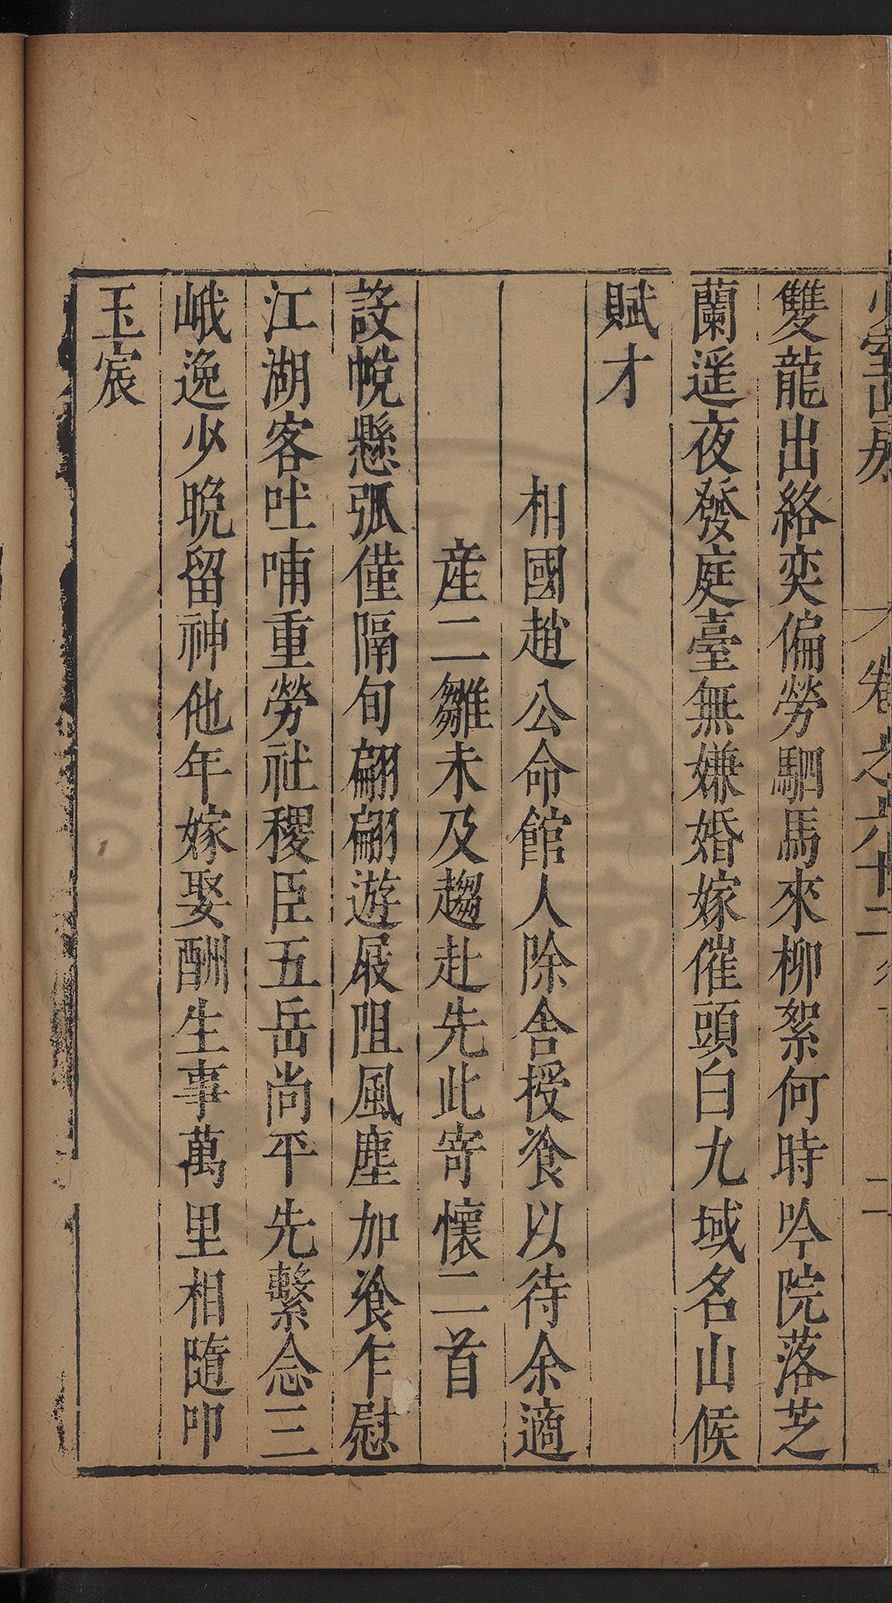 少室山房 卷之六十二 二
雙龍出絡奕偏勞駟馬來柳絮何時吟院落芝
蘭遥夜發庭臺無嫌婚嫁催頭白九域名山候
賦才
相國趙公命館人除舍授飡以待余適
産二雛未及趨赴先此寄懷二首
設帨懸弧僅隔旬翩翩遊屐阻風塵加飡乍慰
江湖客吐哺重勞社稷臣五岳尚平先繫念三
峨逸少晚留神他年嫁娶酬生事萬里相隨叩
玉宸